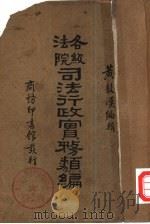 黃敦漢編類
各級
法院
司法行政實務類編
商務印書館發行